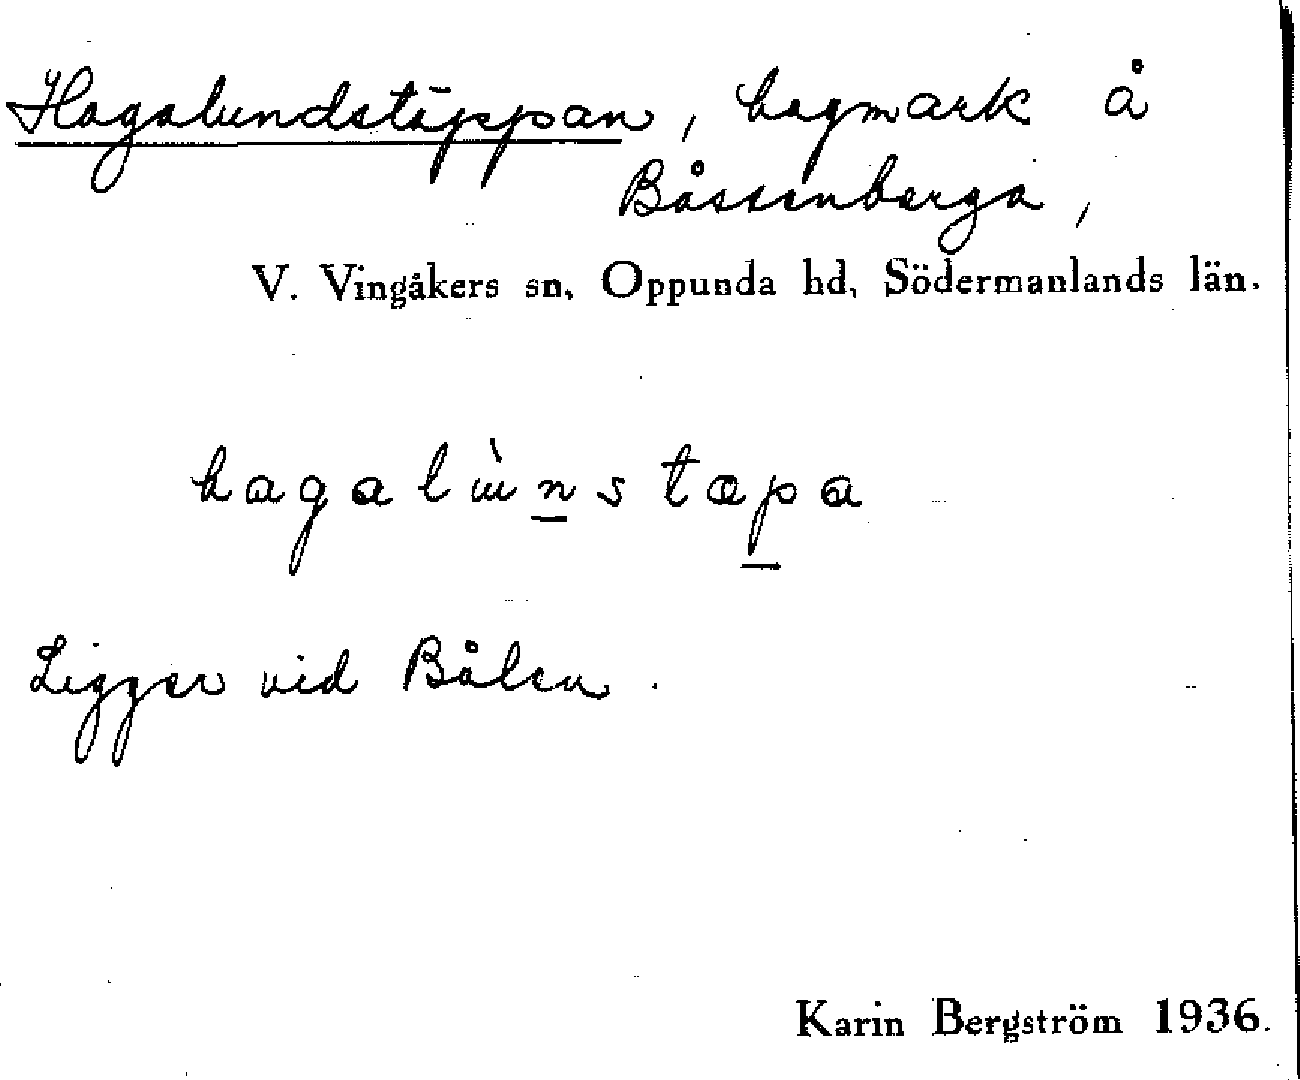 Hagalundstäppan, hagmark å
Båssenberga,
V. Vingåkers sn, Oppunda hd, Södermanlands län.
hagalùn̲stæp̲a
Ligger vid Bålen.
Karin Bergström 1936.